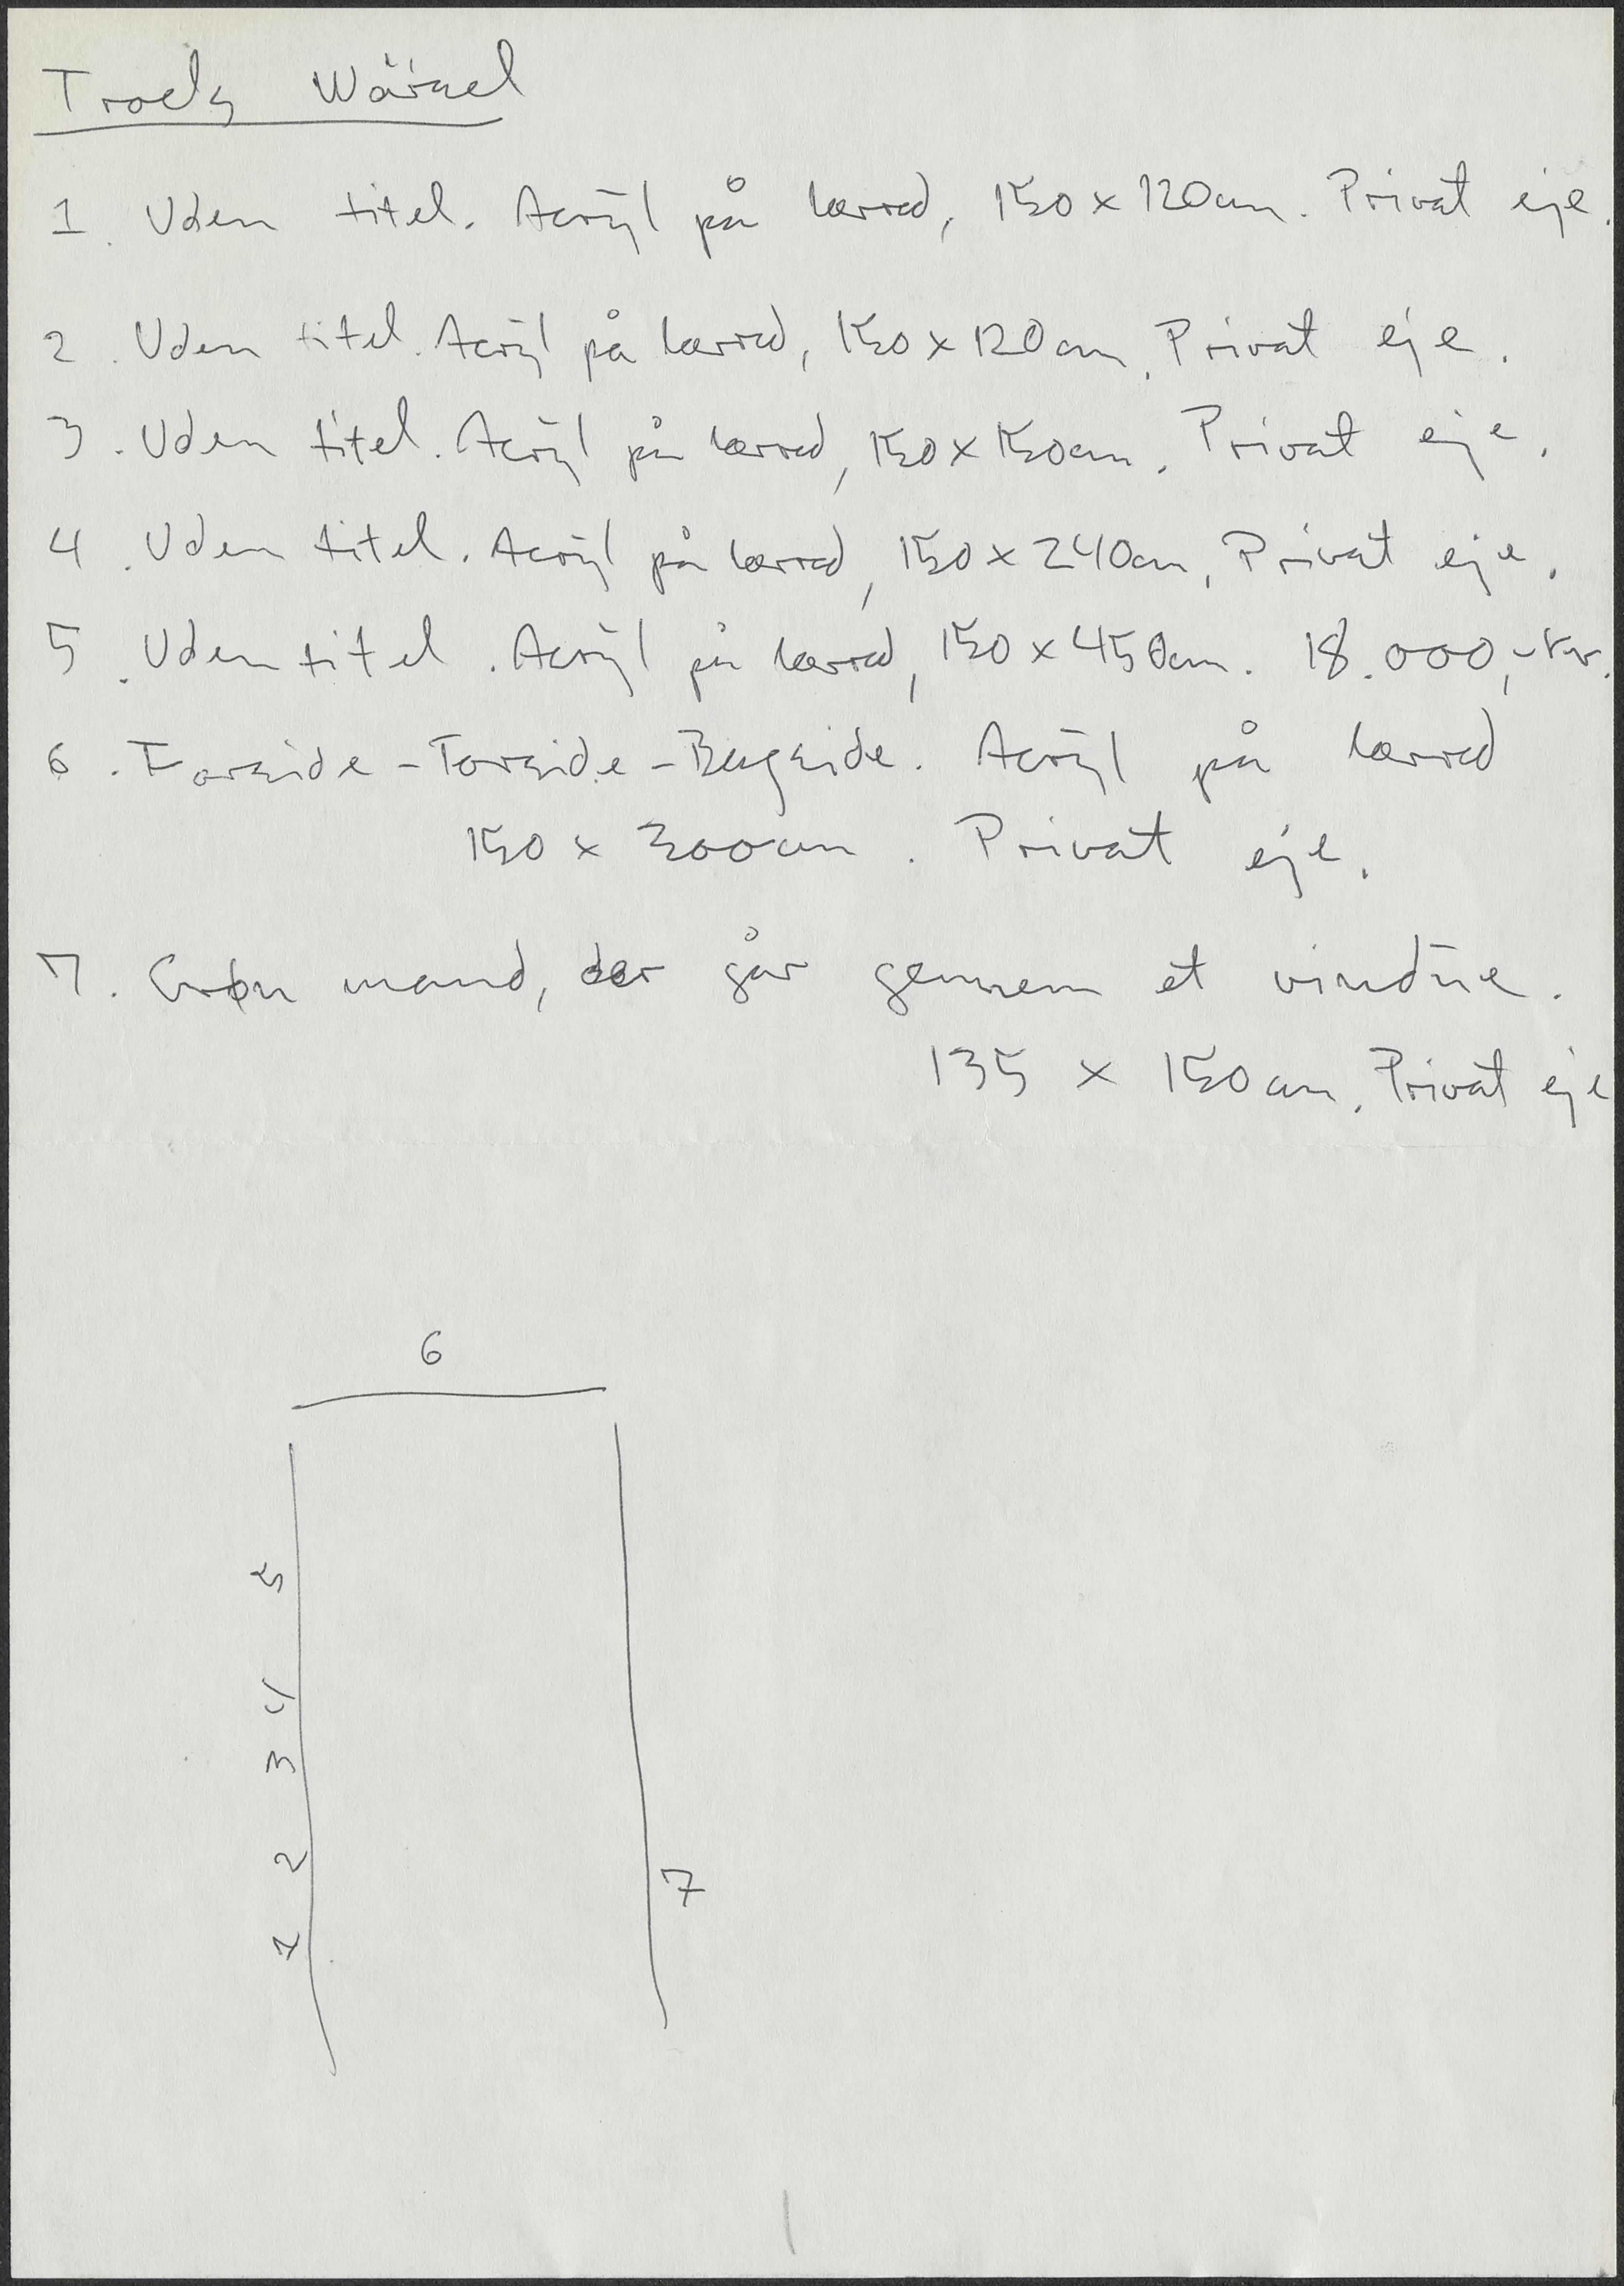 Troels Wörsel
1. Uden titel. Acryl på lærred, 150 x 120 cm. Privat eje.
2. Uden titel. Acryl på lærred, 150 x 120 cm. Privat eje.
3. Uden titel. Acryl på lærred, 150 x 150 cm. Privat eje.
4. Uden titel. Acryl på lærred, 150 x 240 cm. Privat eje.
5. Uden titel. Acryl på lærred, 150 x 450 cm. 18.000,- kr.
6. Forside - Forside - Bagside. Acryl på lærred
150 x 300 cm. Privat eje.
7. Grøn mand, der går gennem et vindue.
135 x 150 cm. Privat eje
6
5
4
3
2
7
1